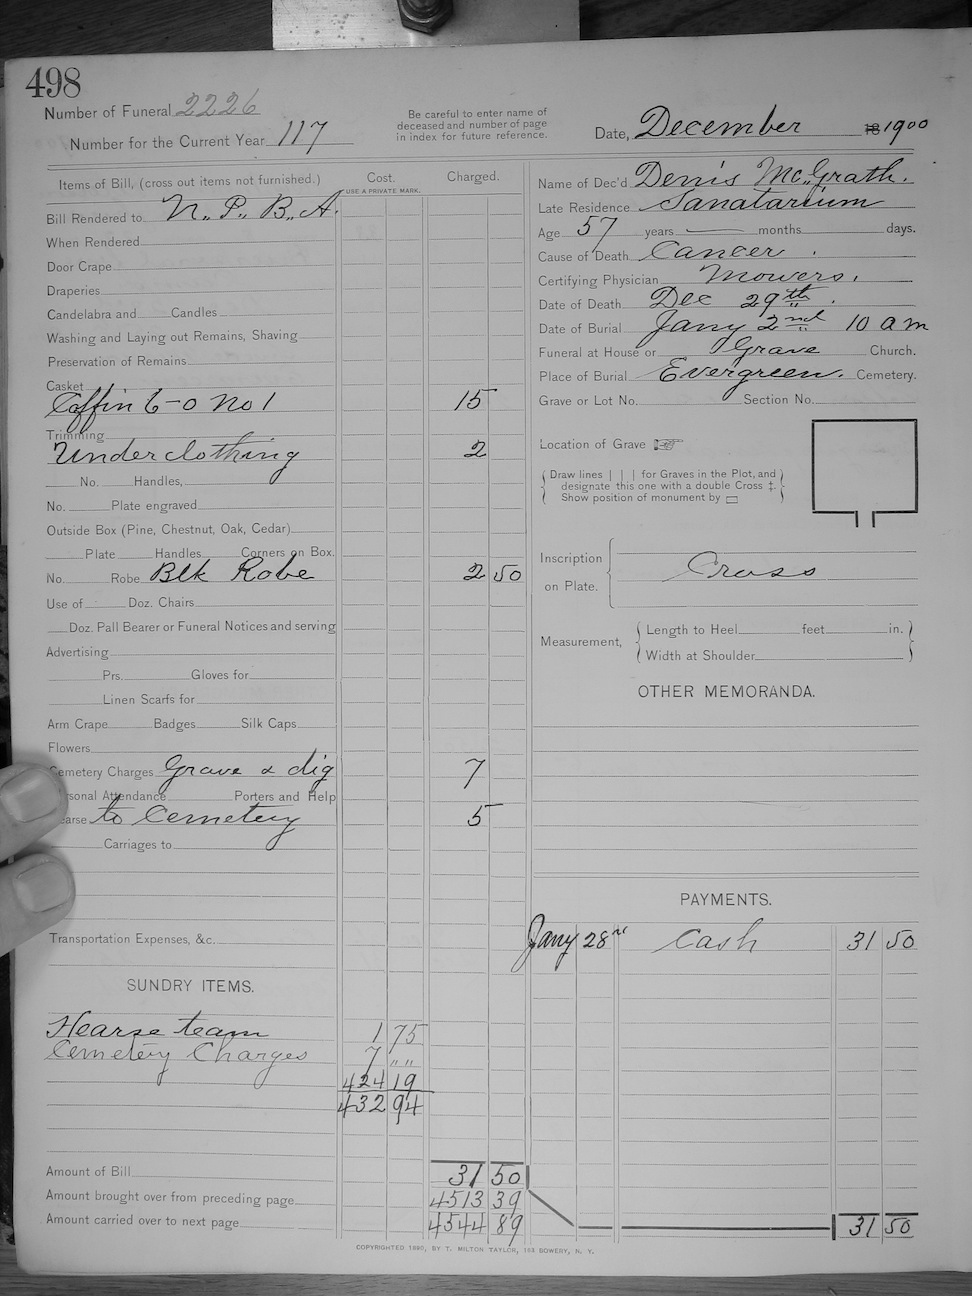 498
Number of Funeral 2226
Number for the Current Year 117
Be careful to enter name of
deceased and number of page
in index for future reference.
Date, December 18 1900
Items of Bill, (cross out items not furnished.)
Cost.
USE A PRIVATE MARK.
Charged.
Bill Rendered to N.. P.. B.. A.
When Rendered
Door Crape
Draperies
Candelabra and Candles
Washing and Laying out Remains, Shaving
Preservation of Remains
Casket
Coffin 6-0 No 1 15
Trimming
Underclothing 2
No. Handles,
No. Plate engraved
Outside Box (Pine, Chestnut, Oak, Cedar)
Plate Handles Corners on Box.
No. Robe Blk Robe 2 50
Use of Doz. Chairs
Doz. Pall Bearer or Funeral Notices and serving
Advertising
Prs. Gloves for
Linen Scarfs for
Arm Crape Badges Silk Caps
Flowers
Cemetery Charges Grave & dig 7
rsonal Attendance Porters and Help
earse to Cemetery 5
Carriages to
Transportation Expenses, &c.
SUNDRY ITEMS.
Hearse team 1 75
Cemetery Charges 7 " "
424 19
432 94
Amount of Bill 31 50
Amount brought over from preceding page 4513 39
Amount carried over to next page 4544 89
Name of Dec'd Denis Mc..Grath.
Late Residence Sanatarium
Age 57 years months days.
Cause of Death Cancer .
Certifying Physician Mowers.
Date of Death Dec 29th .
Date of Burial Jany 2nd 10 a m
Funeral at House or Grave Church.
Place of Burial Evergreen. Cemetery.
Grave or Lot No. Section No.
Location of Grave ☞
Draw lines | | | for Graves in the Plot, and
designate this one with a double Cross ‡.
Show position of monument by ▭
Inscription
on Plate.
Cross
Measurement,
Length to Heel feet in.
Width at Shoulder
OTHER MEMORANDA.
PAYMENTS.
Jany 28 Cash 31 50
31 50
COPYRIGHTED 1890, BY T. MILTON TAYLOR, 163 BOWERY, N. Y.